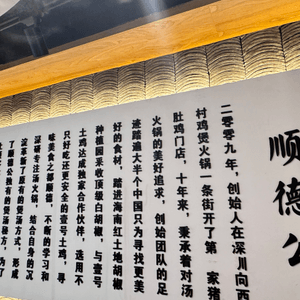 顺德公
二零零九年，创始人在深川向西
村鸡煲火锅一条街开了第一家猪
肚鸡门店，十年来，秉承着对汤
火锅的美好追求，创始团队的足
迹踏遍大半个中国只为寻找更美
好的食材，踏进海南红土地胡椒
种植园采收顶级白胡椒，与壹号
土鸡达成独家合作伙伴，选用不
只好吃还更安全的壹号土鸡，寻
味美食之都顺德，不断的学习和
深研专注汤火锅，结合自身的沉
淀革新了原有的煲汤方式，形成
了顺德公独有的煲汤秘方，为了